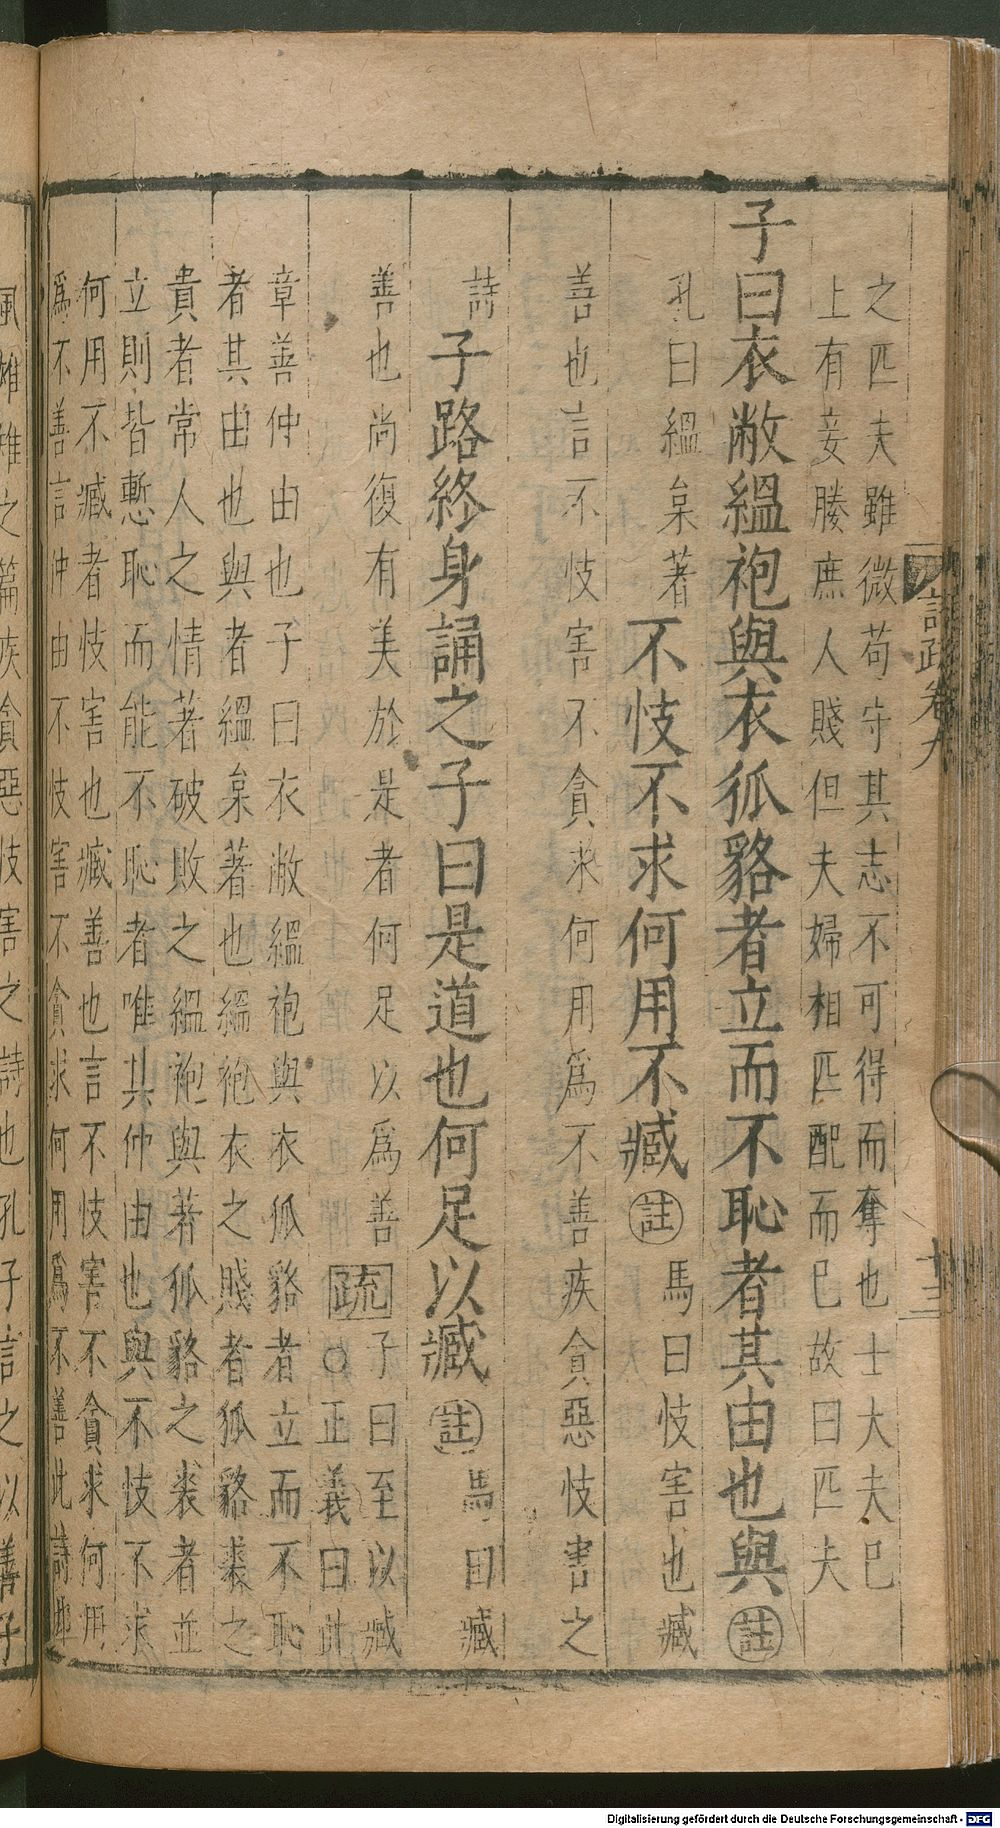 之匹夫雖微苟守其志不可得而奪也士大夫已
上有妾媵庶人賤但夫婦相匹配而已故曰匹夫
子曰衣敝縕袍與衣狐貉者立而不恥者其由也與註
孔曰縕枲著
不忮不求何用不臧註
馬曰忮害也臧
善也言不忮害不貪求何用為不善疾貪惡忮害之
詩
子路終身誦之子曰是道也何足以臧註
馬曰臧
善也尚復有美於是者何足以為善疏
子曰至以臧
○正義曰此
章善仲由也子曰衣敝縕袍與衣狐貉者立而不恥
者其由也與者縕枲著也縕袍衣之賤者狐貉裘之
貴者常人之情著破敗之縕袍與著狐貉之裘者並
立則皆慙恥而能不恥者唯其仲由也與不忮不求
何用不臧者忮害也臧善也言不忮害不貪求何用
為不善言仲由不忮害不貪求何用為不善此詩邶
風雄雉之篇疾貪惡忮害之詩也孔子言之以善子
註疏卷九
十三
Digitalisierung gefördert durch die Deutsche Forschungsgemeinschaft - DFG